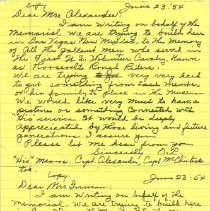 Copy June 23 '54
Dear Mrs Alexander:
I am Writing on behalf of the
Memorial. We are Trying to build here
in Las Vegas New Mexico. To the Memory
of All the Gallant Men who served in
The First U.S. Volunteer Cavalry, Known
as Roosevelt's Rough Riders.
We are Trying to very very hard
to get something from each Member
or his Family to Place in The Museum
We would like very much to have a
or something connected with
his service. It would be deeply
Appreciated by those living and future
Generations, I assure you.
Please let me hear from you
Sincerely
"His" means Capt Alexander, Capt McClintock
Copy June 23-54
Dear Mr
I am Writing on behalf of the
Memorial, We are Trying to build here